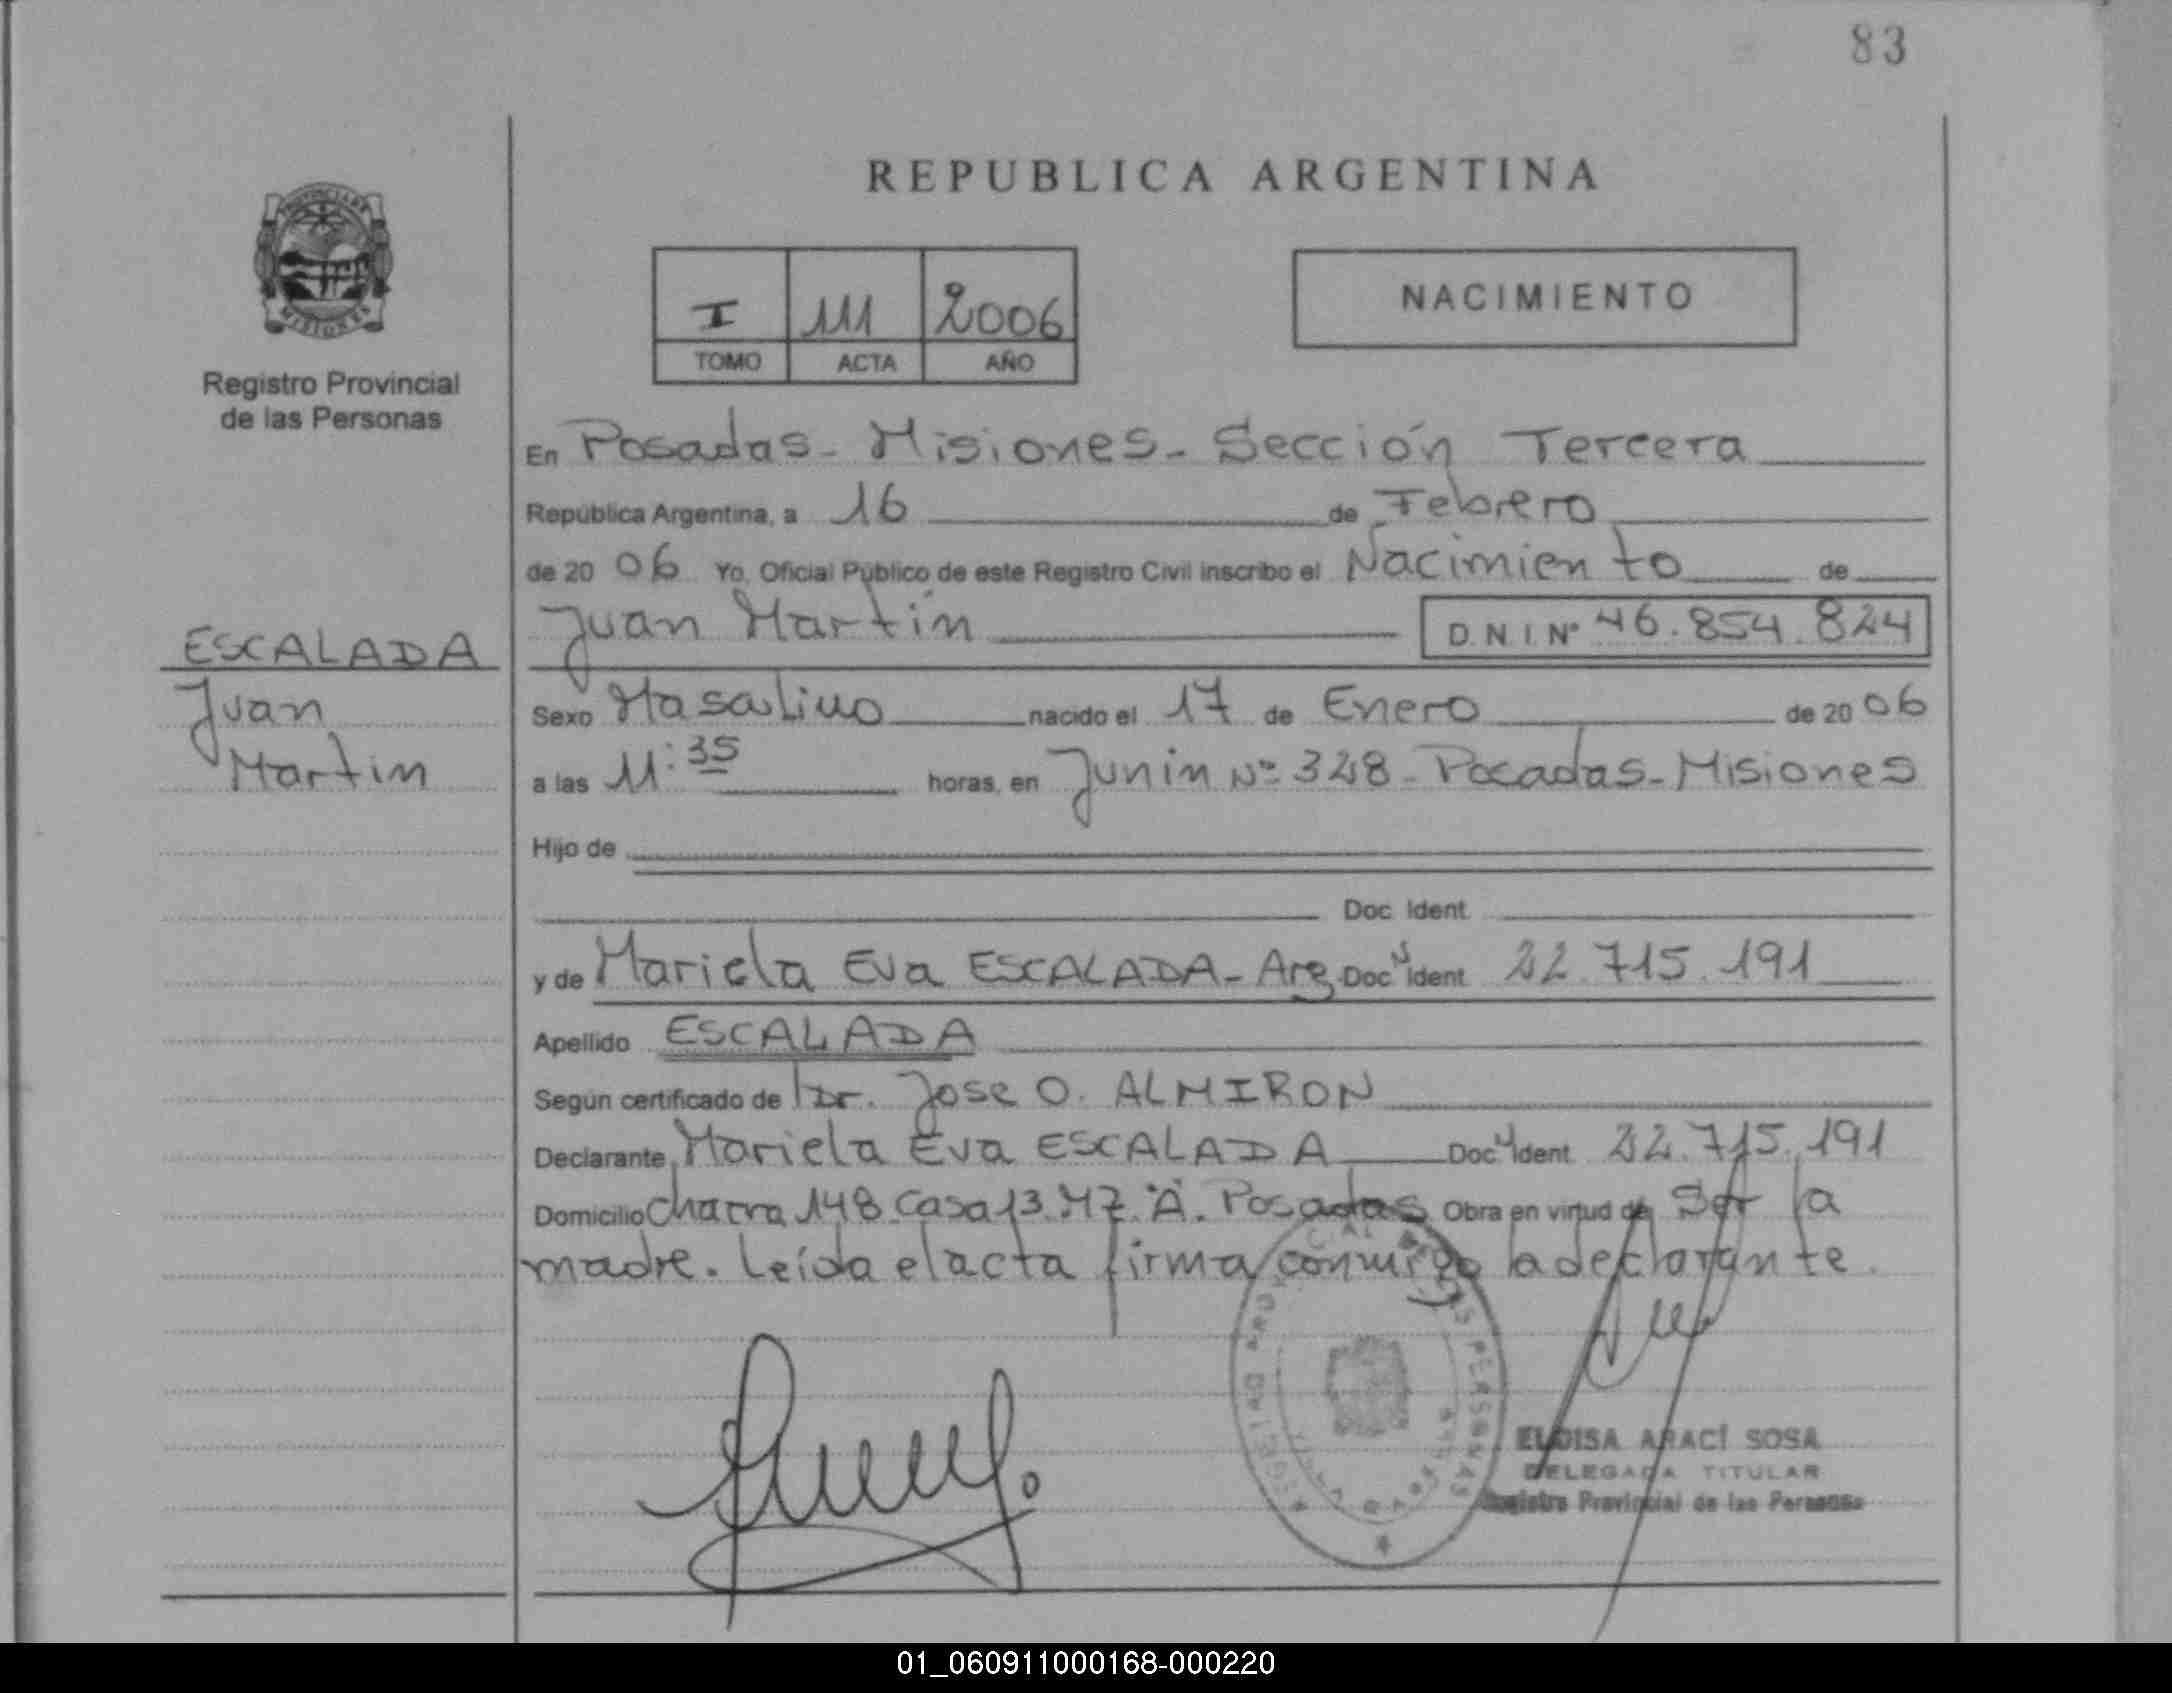 83
REPUBLICA ARGENTINA
I 111 2006
TOMO ACTA AÑO
NACIMIENTO
MISIONES
Registro Provincial
de las Personas
En Posadas - Misiones - Sección Tercera
República Argentina, a 16 de Febrero
de 2006 Yo, Oficial Público de este Registro Civil inscribo el Nacimiento de
Juan Martín D.N.I. Nº 46.854.824
ESCALADA
Juan
Martin
Sexo Masculino nacido el 17 de Enero de 2006
a las 11:35 horas, en Junin Nº 328 - Posadas - Misiones
Hijo de
Doc. Ident.
y de Mariela Eva ESCALADA - Arg. Doc. Ident. 22.715.191
Apellido ESCALADA
Según certificado de Dr. Jose O. ALMIRON
Declarante Mariela Eva ESCALADA Doc. Ident. 22.715.191
Domicilio Chacra 148 Casa 13 Mz "A". Posadas Obra en virtud de Ser la
madre. Leída el acta firma conmigo la declarante.
ELOISA ARACÍ SOSA
DELEGADA TITULAR
Registro Provincial de las Personas
01_060911000168-000220